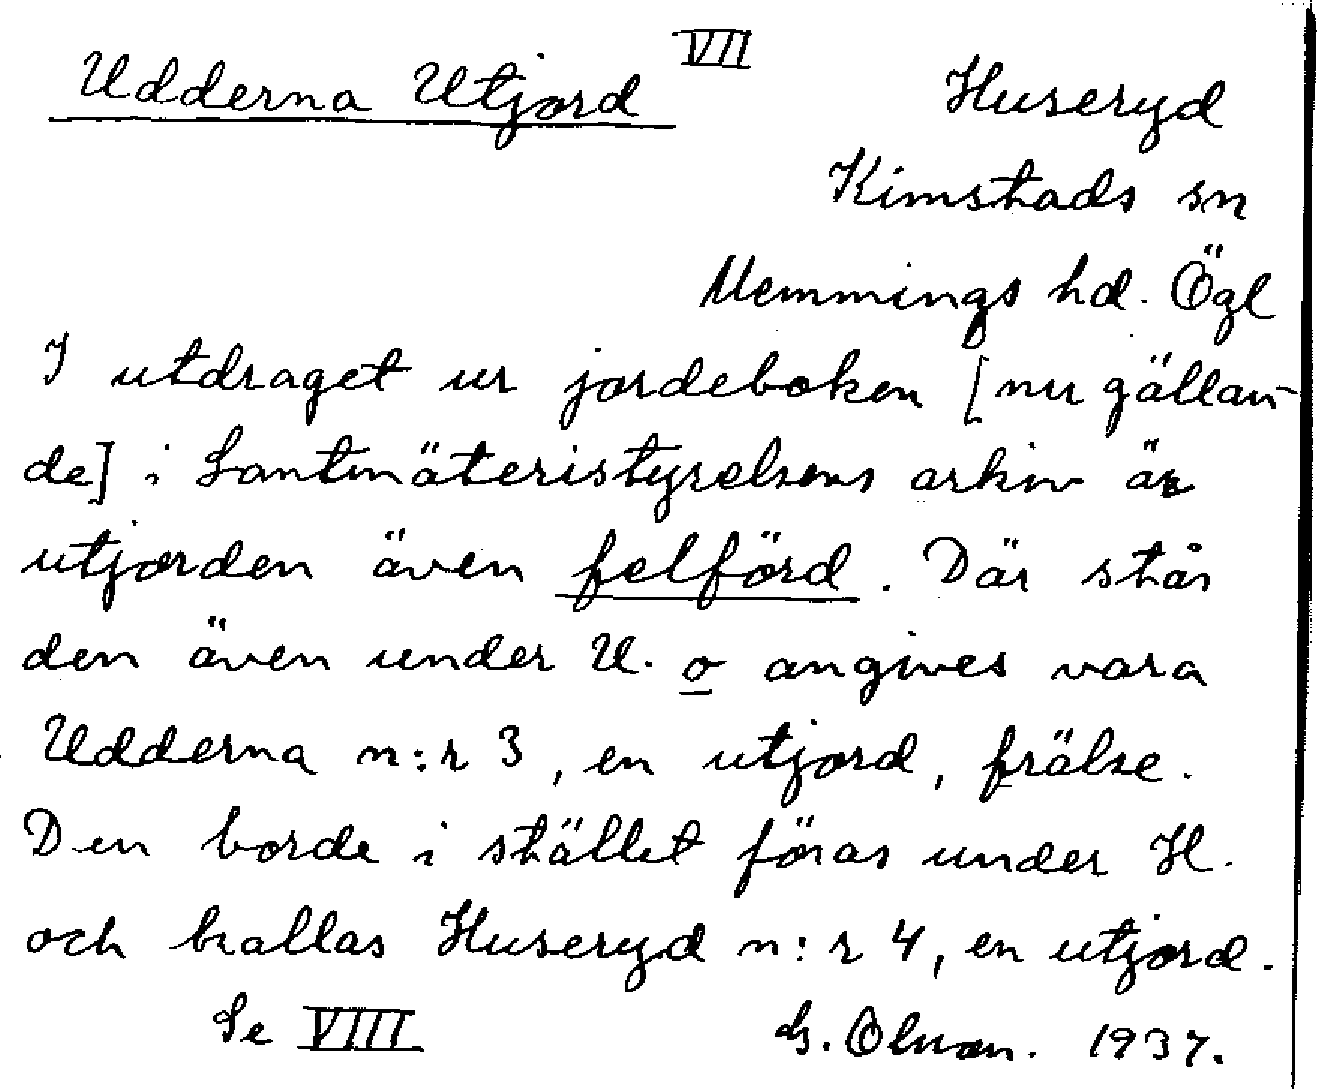 VII
Udderna Utjord
Huseryd
Kimstads sn
Memmings hd. Ögl
I utdraget ur jordeboken [nu gällan-
de] i Lantmäteristyrelsens arkiv är
utjorden även felförd. Där står
den även under U. o angives vara
Udderna n:r 3, en utjord, frälse.
Den borde i stället föras under H.
och kallas Huseryd n:r 4, en utjord.
Se VIII
G. 1937.